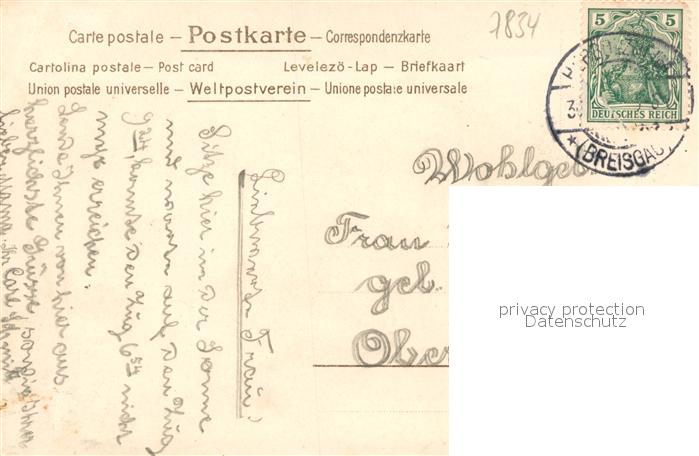 Carte postale — Postkarte — Correspondenzkarte
7834
Cartolina postale — Post card Levelezö-Lap — Briefkaart
Union postale universelle — Weltpostverein — Unione postale universale
5 5
DEUTSCHES REICH
(BREISGAU)
Wohlgeb
Frau
geb.
Ober
privacy protection
Datenschutz
Frau!
Sitze hier in der Sonne
und warte auf den Zug
9 24, konnte den Zug 6 54 nicht
mehr erreichen.
Sende Ihnen von hier aus
herzlichste Grüsse
Ihr Carl